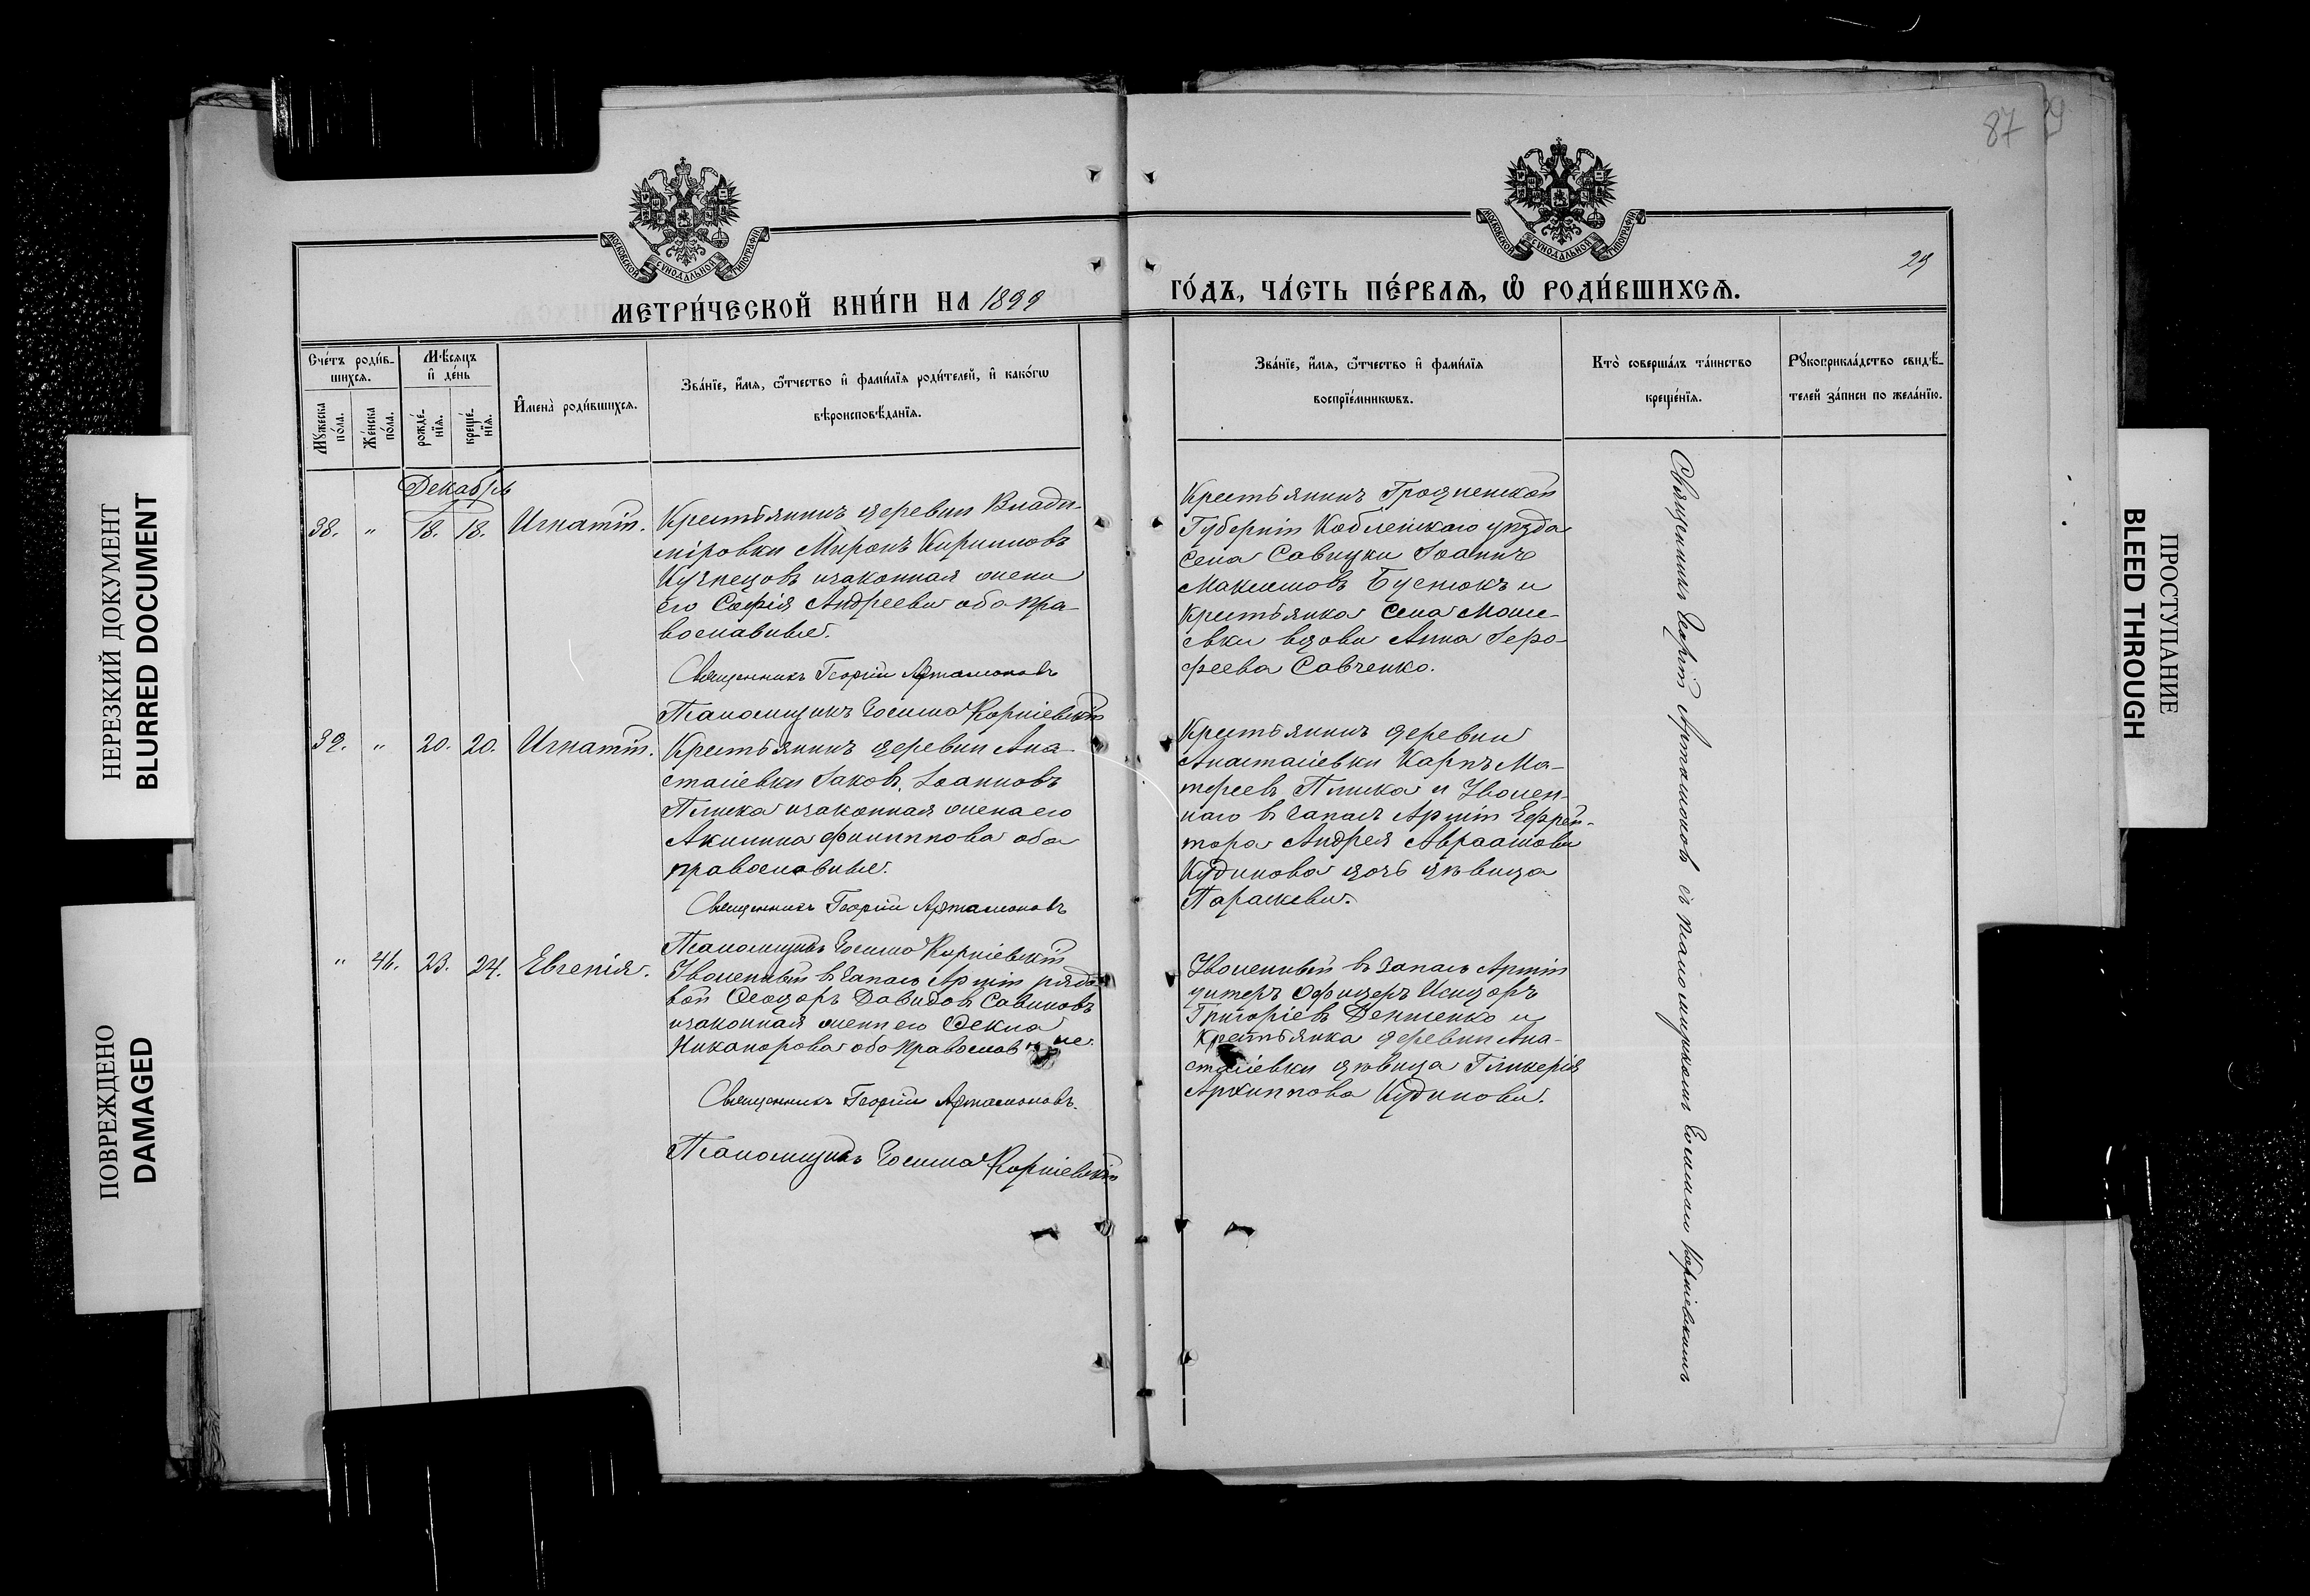 87
29
МОСКОВСКОЙ СѴНОДАЛЬНОЙ ТИПОГРАФІИ
МОСКОВСКОЙ СѴНОДАЛЬНОЙ ТИПОГРАФІИ
МЕТРИ́ЧЕСКОЙ КНИ́ГИ НА 1899
ГО́ДЪ, ЧА́СТЬ ПЕ́РВАѦ, Ѡ҆ РОДИ́ВШИХСѦ.
Сче́тъ роди́в-
шихсѧ.
Мꙋ́жеска по́ла.
Же́нска по́ла.
Мѣ́сѧцъ
и҆ де́нь
рожде́-
нїѧ.
креще́-
нїѧ.
И҆мена̀ роди́вшихсѧ.
Зва́нїе, и҆́мѧ, ѻ҆́тчество и҆ фами́лїѧ роди́телей, и҆ како́гѡ
вѣроисповѣ́данїѧ.
Зва́нїе, и҆́мѧ, ѻ҆́тчество и҆ фами́лїѧ
воспрїе́мникѡвъ.
Кто̀ соверша́лъ та́инство
креще́нїѧ.
Рꙋкоприкла́дство свидѣ́-
телей за́писи по жела́нїю.
Декабрь
38. " 18. 18. Игнатій.
Крестьянинъ деревни Влади-
міровки Миронъ Кирилловъ
Кузнецовъ изаконная жена
его Софія Андреева оба пра-
вославные.
Священникъ Георгій Артамоновъ
Псаломщикъ Косьма Корніевскій
Крестьянинъ Гродненской
Губерніи Кобринскаго уѣзда
села Савицки Іоаннъ
Максимовъ Бусюкъ и
Крестьянка села Моисе-
евки вдова Анна Іеро-
феева Савченко.
39. " 20. 20. Игнатій.
Крестьянинъ деревни Ана-
стасіевки Іаковъ Іоанновъ
Плиска изаконная жена его
Акилина Филиппова оба
православные.
Священникъ Георгій Артамоновъ
Псаломщикъ Косьма Корніевскій
Крестьянинъ деревни
Анастасіевки Карпъ Ма-
тфеевъ Плиска и Уволен-
наго въ Запасъ Арміи Ефрей-
тора Андрея Авраамова
Кудинова дочь дѣвица
Параскева.
" 46. 23. 24. Евгенія.
Уволенный въ Запасъ Арміи рядо-
вой Ѳеодоръ Давидовъ Савиновъ
изаконная жена его Ѳекла
Никанорова оба православные.
Священникъ Георгій Артамоновъ.
Псаломщикъ Косьма Корніевскій
Уволенный въ Запасъ Арміи
унтеръ Офицеръ Исидоръ
Григоріевъ Демченко и
Крестьянка деревни Ана-
стасіевки дѣвица Гликерія
Архиппова Кудинова.
Священникъ Георгій Артамоновъ съ псаломщикомъ Космою Корніевскимъ
НЕРЕЗКИЙ ДОКУМЕНТ
BLURRED DOCUMENT
ПОВРЕЖДЕНО
DAMAGED
ПРОСТУПАНИЕ
BLEED THROUGH